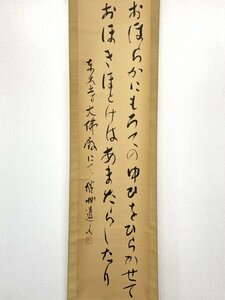 おほらかにもろてのゆびをひらかせて
おほきほとけはあまたらしたり
東大寺大佛殿にて 秋艸道人